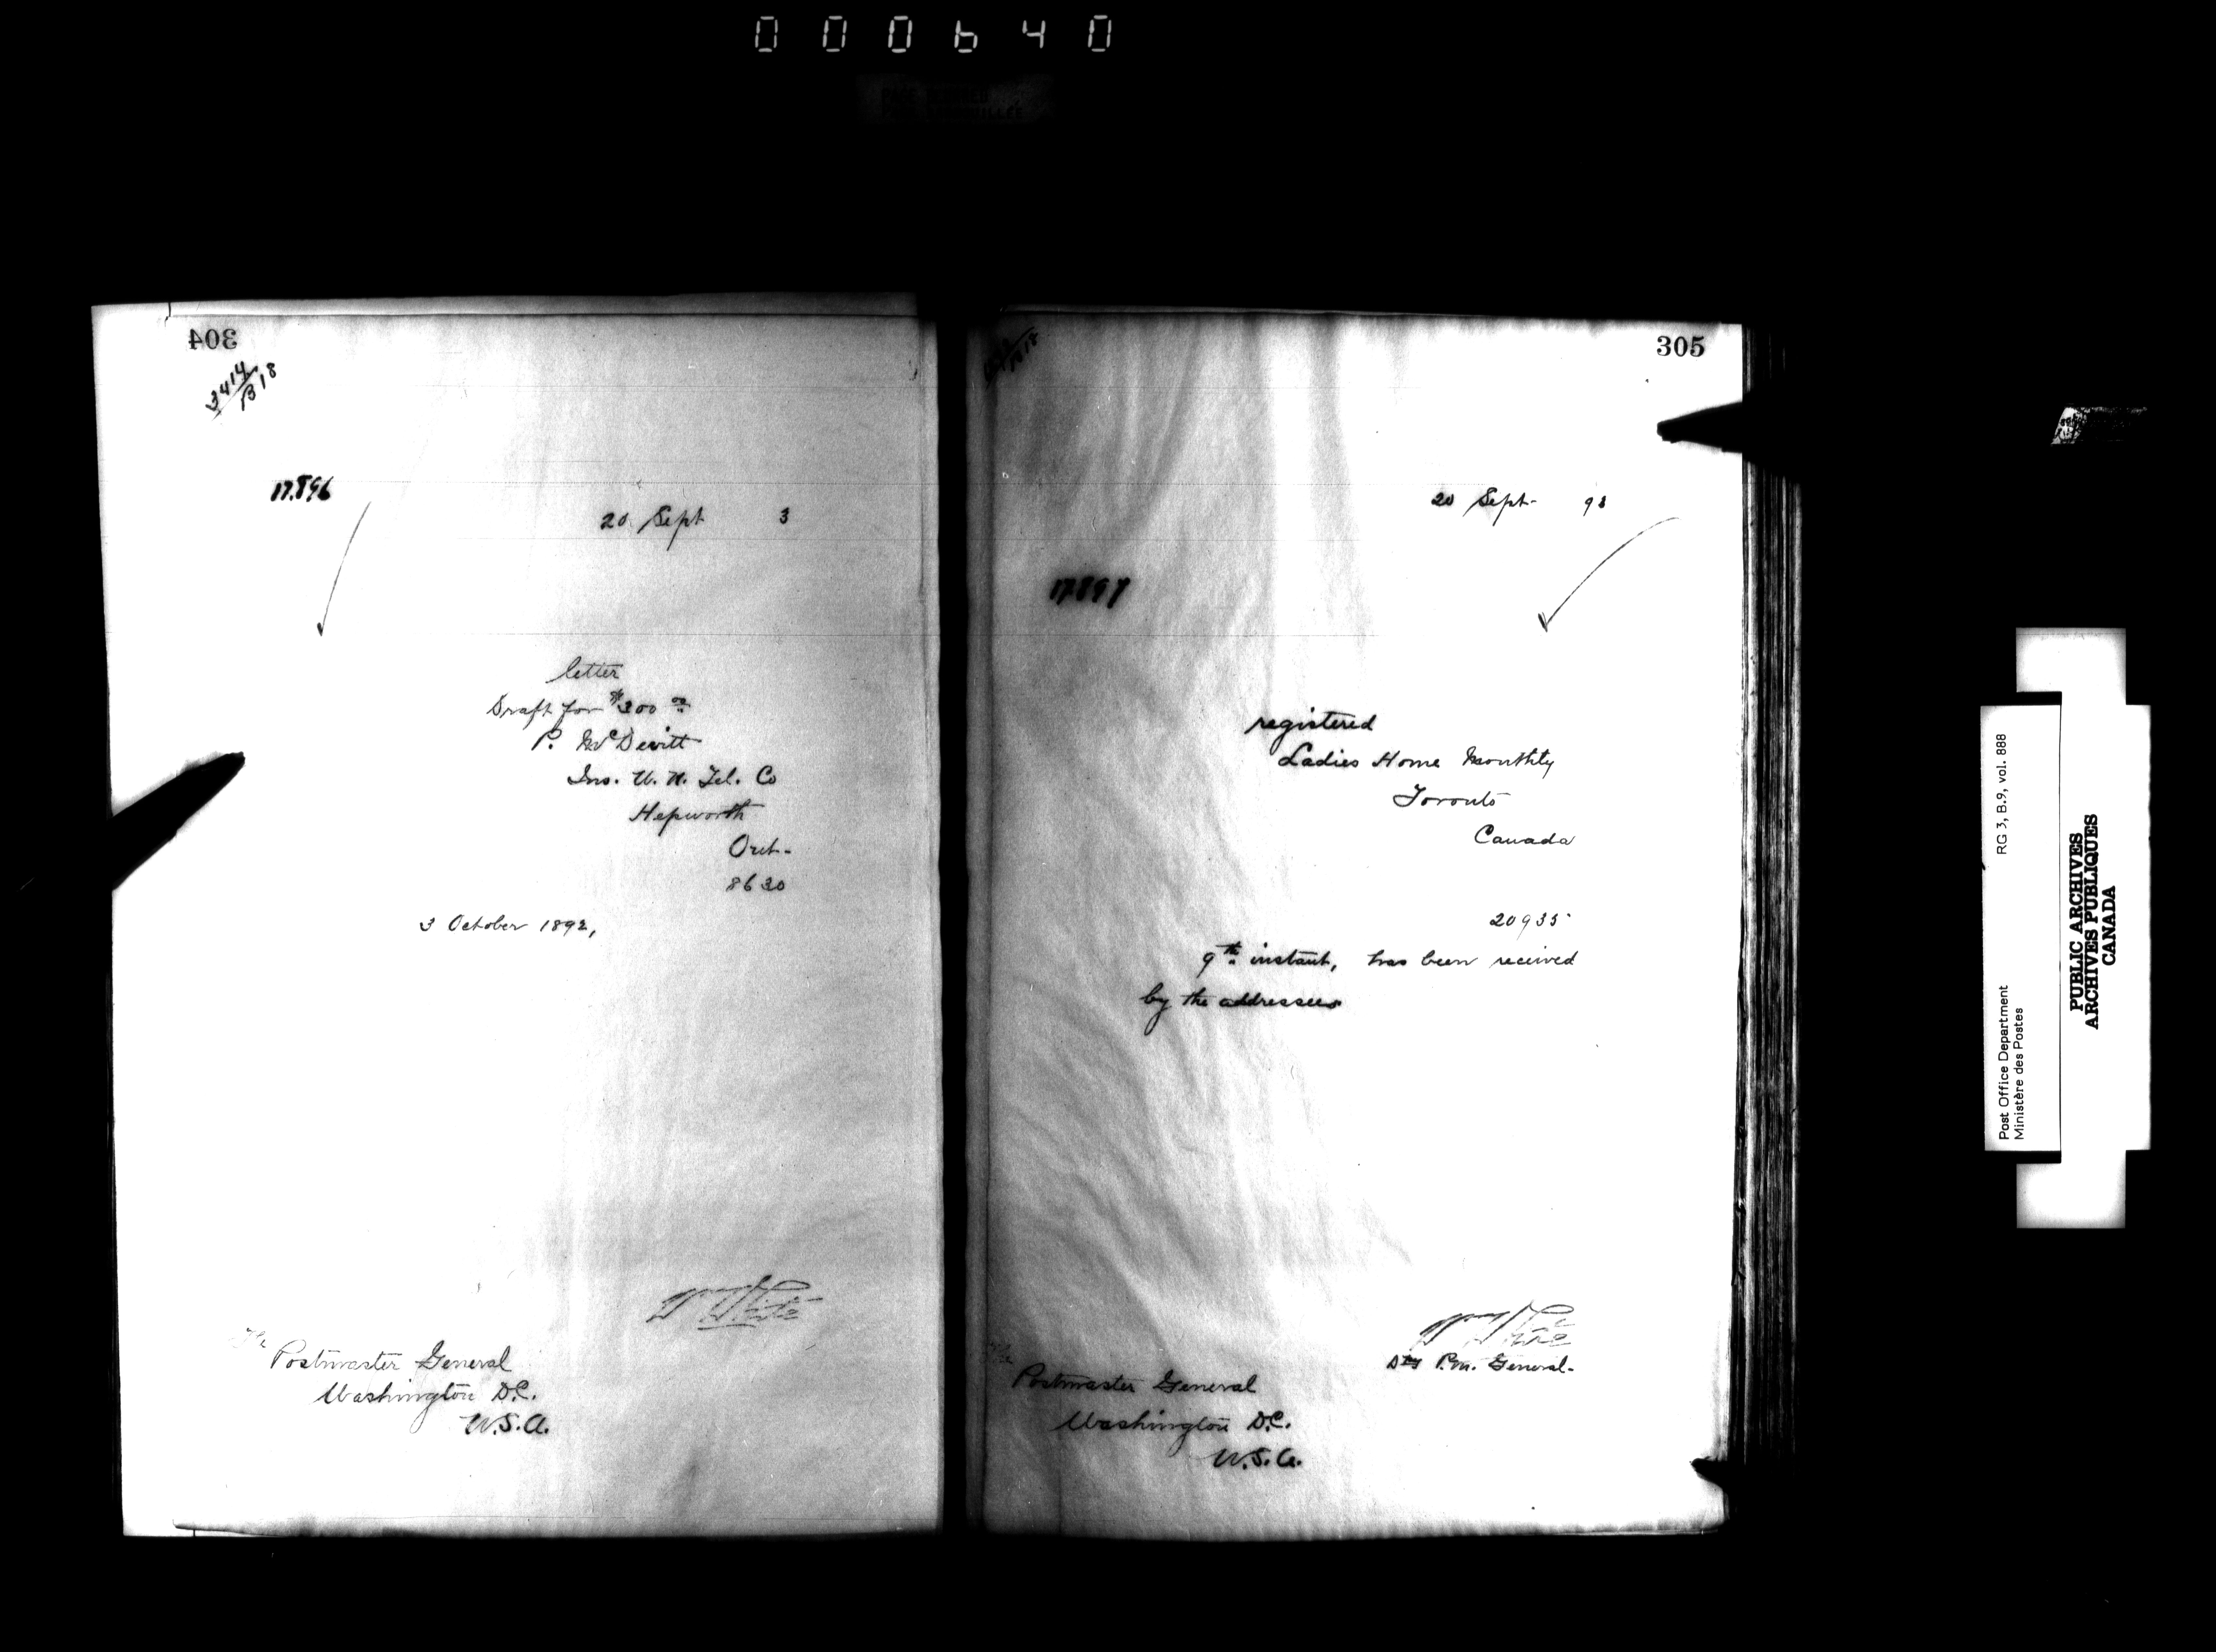 000640
304
3414
B18
17.896
20 Sept 3
letter
Draft for $300 00
P. McDevitt
Ins. U. N. Tel. Co
Hepworth
Ont-
8630
3 October 1892,
W White
The
Postmaster General
Washington D.C.
U.S.A.
305
20 Sept- 93
17897
registered
Ladies Home Monthly
Toronto
Canada
20935
9th instant, has been received
by the addressees
W White
Dty P.M. General-
The
Postmaster General
Washington D.C.
U.S.A.
Post Office Department
Ministère des Postes
RG 3, B.9, vol. 888
PUBLIC ARCHIVES
ARCHIVES PUBLIQUES
CANADA